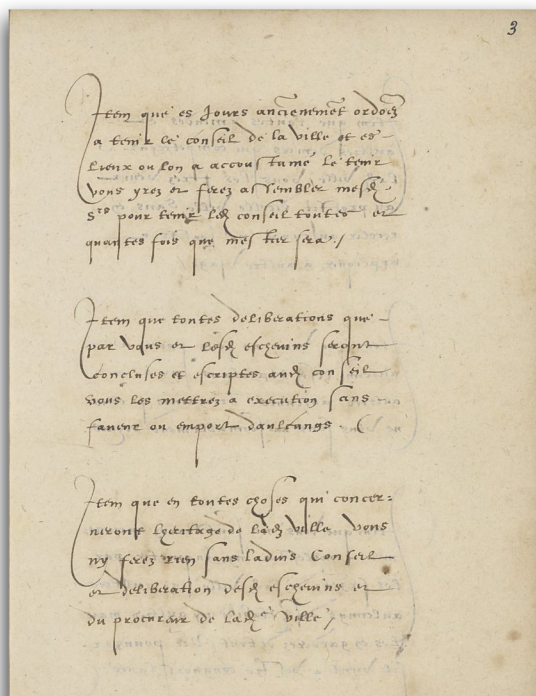 3
Item que es Jours anciennemẽt ordõez
a tenir le conseil de la ville et es
lieux ou lon a accoustume le tenir
vous yrez et ferez assembler mesd.
Srs pour tenir led. conseil toutes et
quantes fois que mestier sera /
Item que toutes deliberations que
par vous et lesd. eschevins seront
concluses et escriptes aud. conseil
vous les mettrez a execution sans
faveur ou emport daulcungs.
Item que en toutes choses qui concer=
neront lheritage de lad. ville vous
ny ferez rien sans ladvis Conseil
et deliberation desd. eschevins et
du procureur de lade ville /